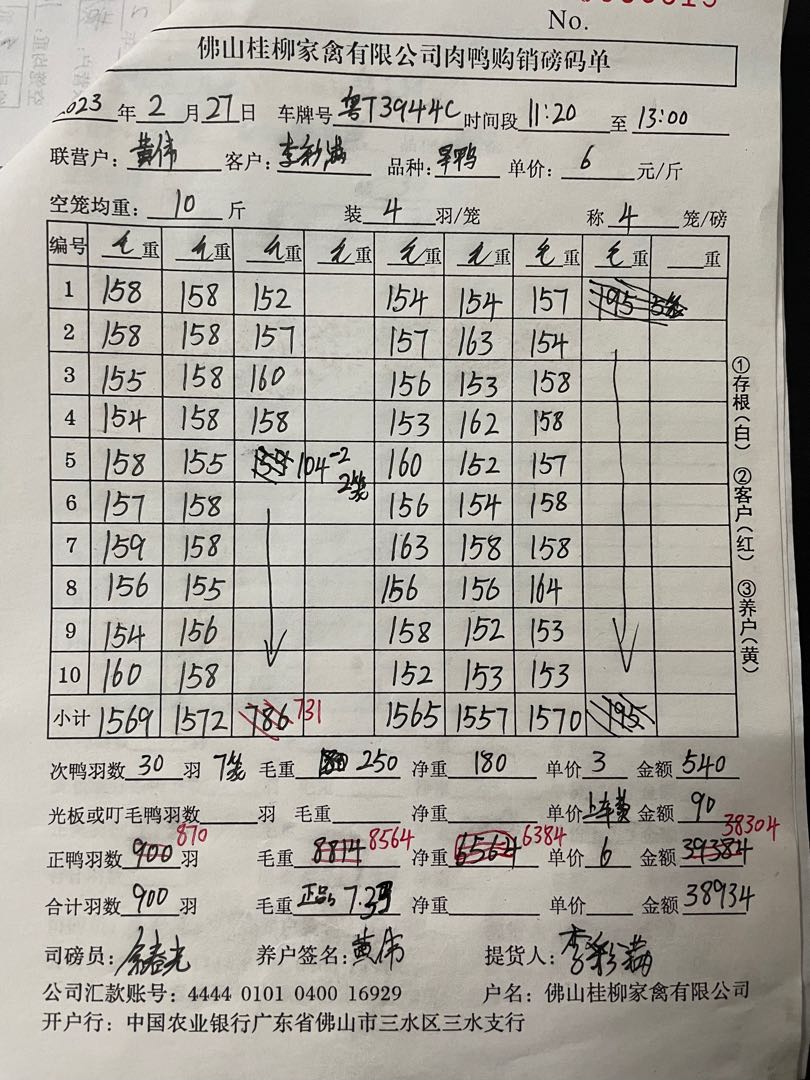 No.
佛山桂柳家禽有限公司肉鸭购销磅码单
2023年2月27日 车牌号粤T3944C时间段11:20至13:00
联营户:黄伟 客户:李彩满 品种:旱鸭 单价:6元/斤
空笼均重:10斤 装4羽/笼 称4笼/磅
编号 毛重 毛重 毛重 毛重 毛重 毛重 毛重 毛重 重
1 158 158 152 154 154 157 195 5笼
2 158 158 157 157 163 154
3 155 158 160 156 153 158
4 154 158 158 153 162 158
5 158 155 104-2 2笼 160 152 157
6 157 158 156 154 158
7 159 158 163 158 158
8 156 155 156 156 164
9 154 156 158 152 153
10 160 158 152 153 153
小计 1569 1572 786 731 1565 1557 1570 195
次鸭羽数30羽 7笼 毛重250 净重180 单价3 金额540
光板或叮毛鸭羽数羽 毛重 净重 单价上车费 金额90
正鸭羽数900 870羽 毛重8814 8564 净重6564 6384 单价6 金额39384 38304
合计羽数900羽 毛重正品 7.3 净重 单价 金额38934
司磅员: 养户签名:黄伟 提货人:李彩满
公司汇款账号:4444 0101 0400 16929 户名:佛山桂柳家禽有限公司
开户行:中国农业银行广东省佛山市三水区三水支行
①存根(白) ②客户(红) ③养户(黄)